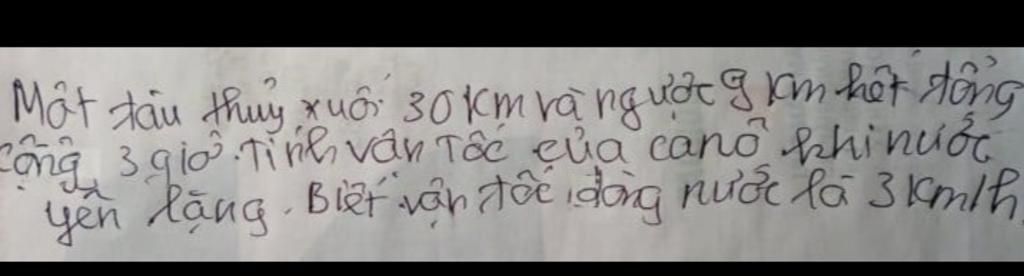 Một tàu thuỷ xuôi 30km và ngược 9 km hết tổng
cộng 3 giờ. Tính vận tốc của canô khi nước
yên lặng. Biết vận tốc dòng nước là 3 km/h